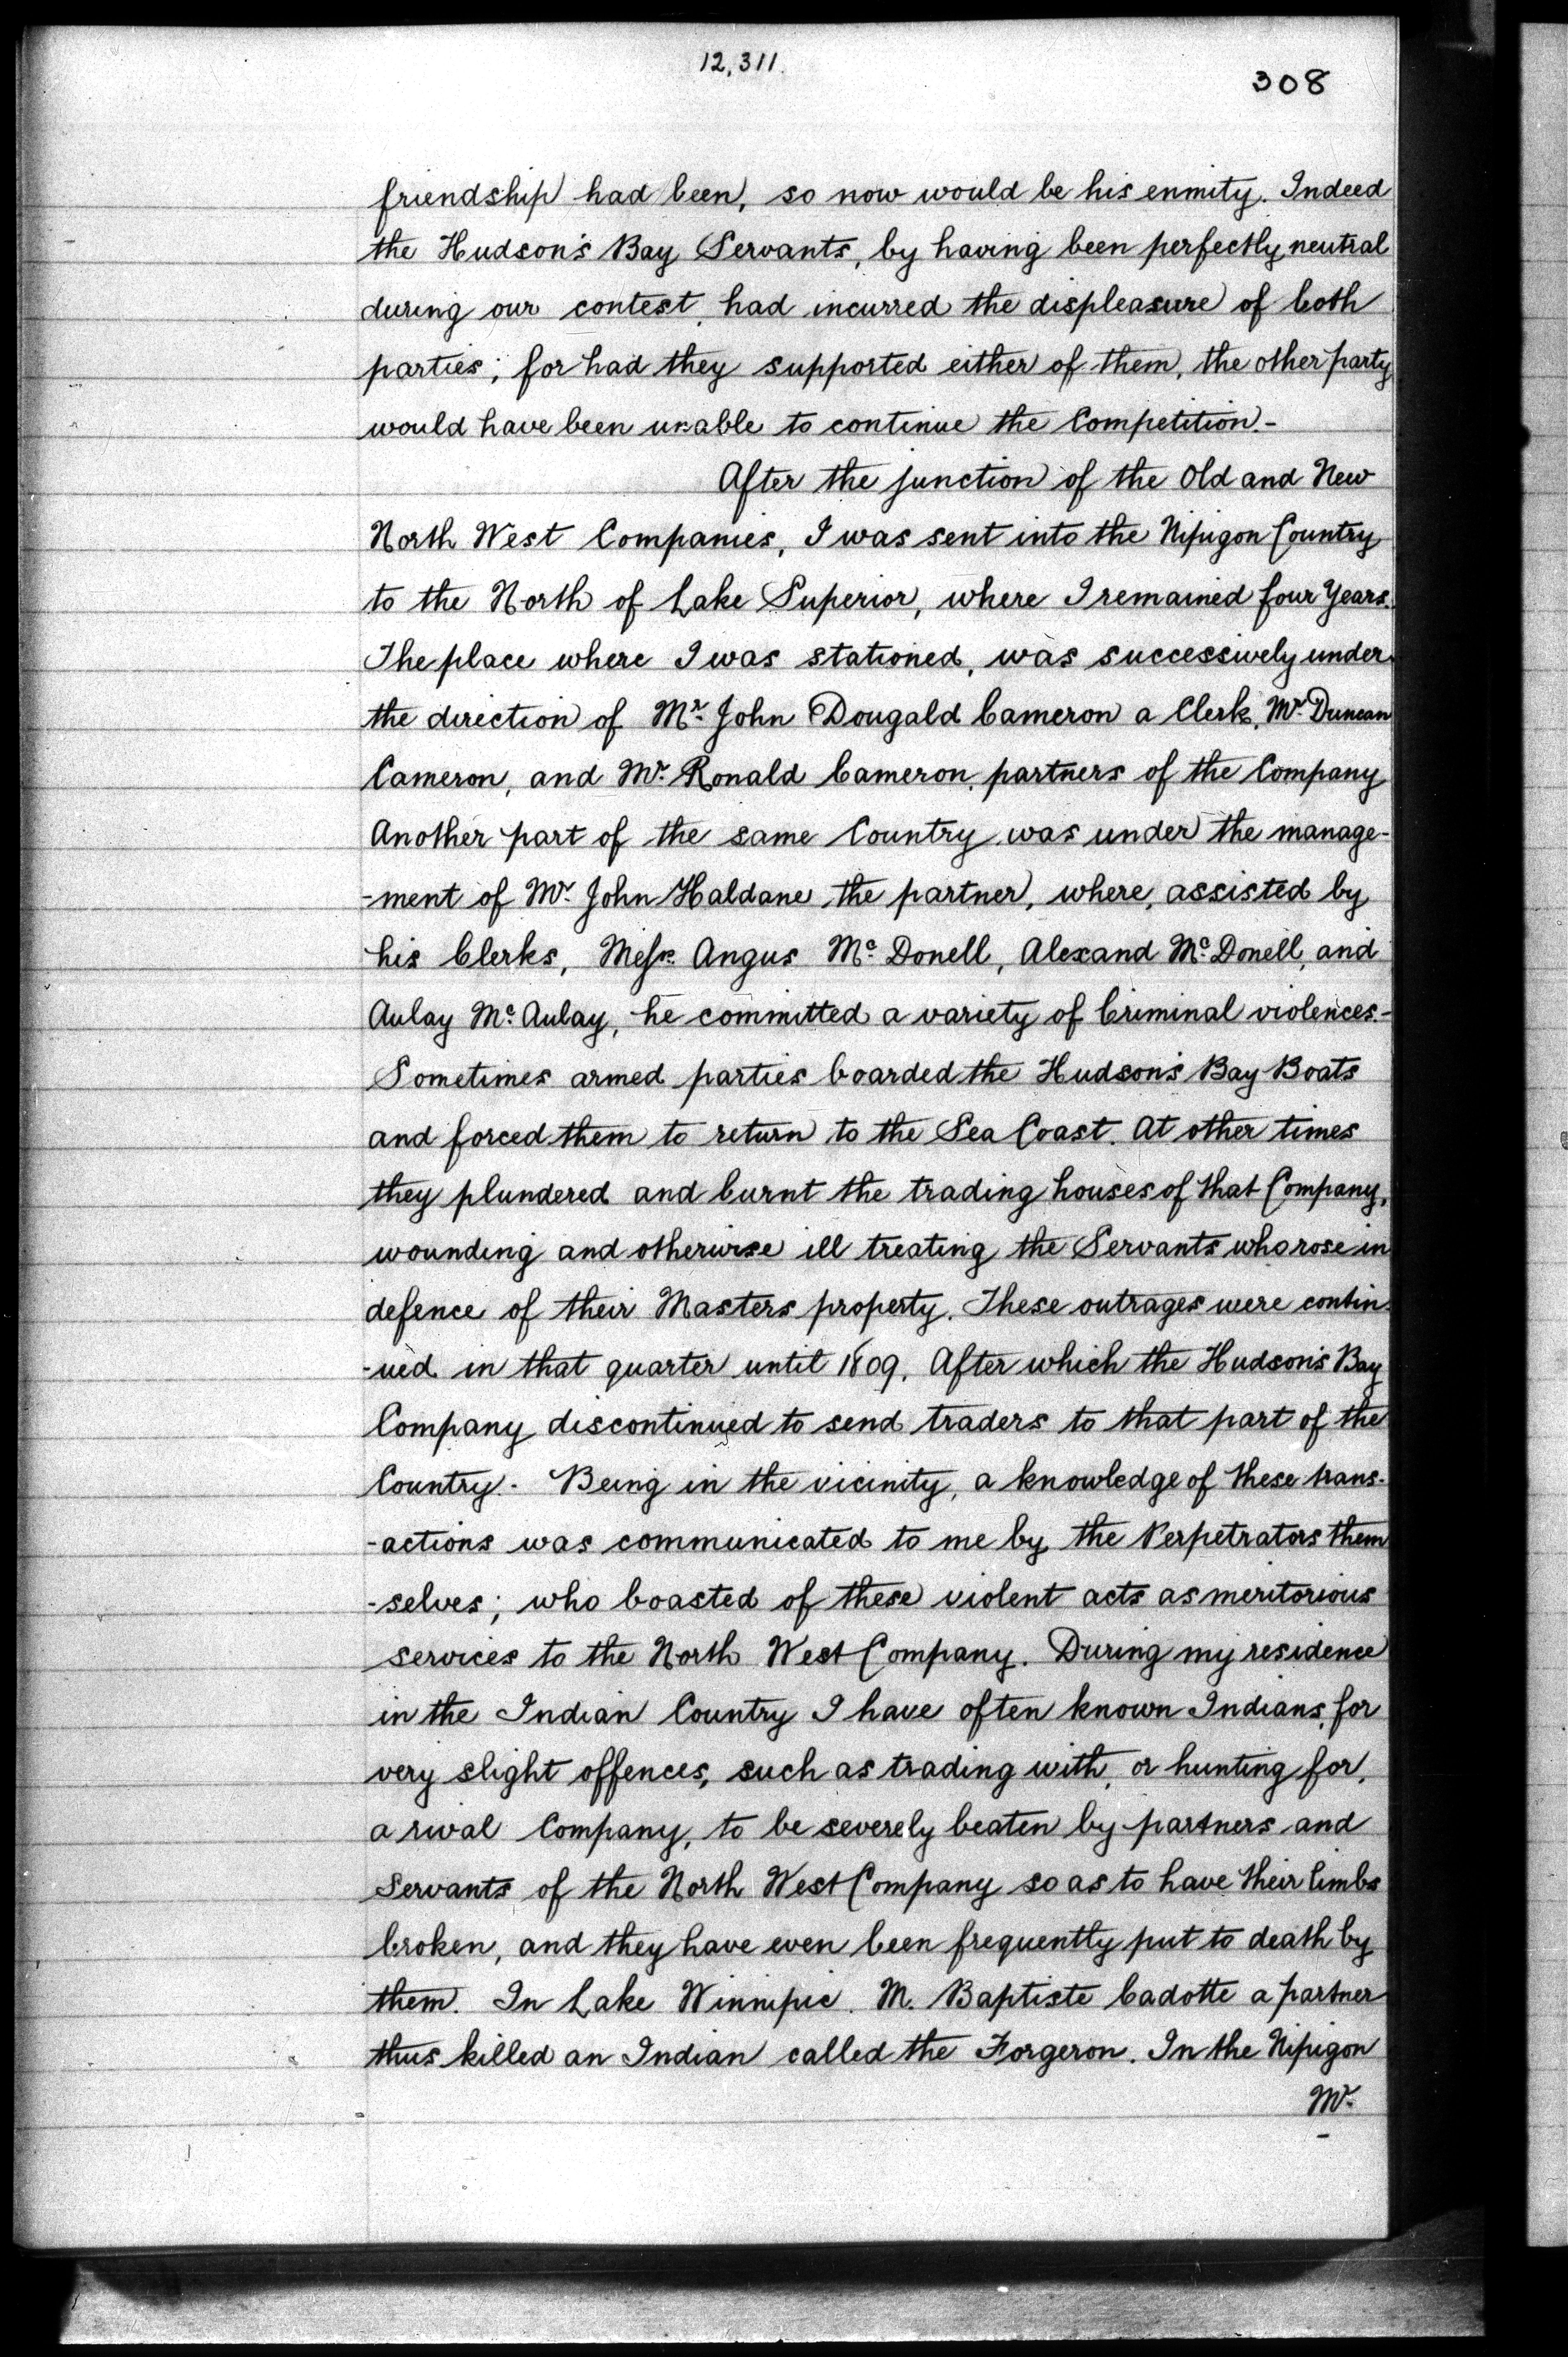 12,311.
308
friendship had been, so now would be his enmity. Indeed
the Hudson's Bay Servants, by having been perfectly neutral
during our contest, had incurred the displeasure of both
parties; for had they supported either of them, the other party
would have been unable to continue the Competition.-
After the junction of the Old and New
North West Companies, I was sent into the Nipigon Country
to the North of Lake Superior, where I remained four Years.
The place where I was stationed, was successively under
the direction of Mr. John Dougald Cameron a Clerk, Mr. Duncan
Cameron, and Mr. Ronald Cameron, partners of the Company
Another part of the same Country was under the manage-
-ment of Mr. John Haldane the partner, where, assisted by
his Clerks, Messrs. Angus Mc. Donell, Alexand Mc. Donell, and
Aulay Mc. Aulay, he committed a variety of Criminal violences.-
Sometimes armed parties boarded the Hudson's Bay Boats
and forced them to return to the Sea Coast. At other times
they plundered and burnt the trading houses of that Company,
wounding and otherwise ill treating the Servants who rose in
defence of their Masters property. These outrages were contin-
-ued in that quarter until 1809. After which the Hudson's Bay
Company discontinued to send traders to that part of the
Country.- Being in the vicinity, a knowledge of these trans-
-actions was communicated to me by the Perpetrators them
-selves; who boasted of these violent acts as meritorious
services to the North West Company. During my residence
in the Indian Country I have often known Indians, for
very slight offences, such as trading with, or hunting for,
a rival Company, to be severely beaten by partners and
Servants of the North West Company so as to have their limbs
broken, and they have even been frequently put to death by
them. In Lake Winnipic. M. Baptiste Cadotte a partner
thus killed an Indian called the Forgeron. In the Nipigon
Mr.